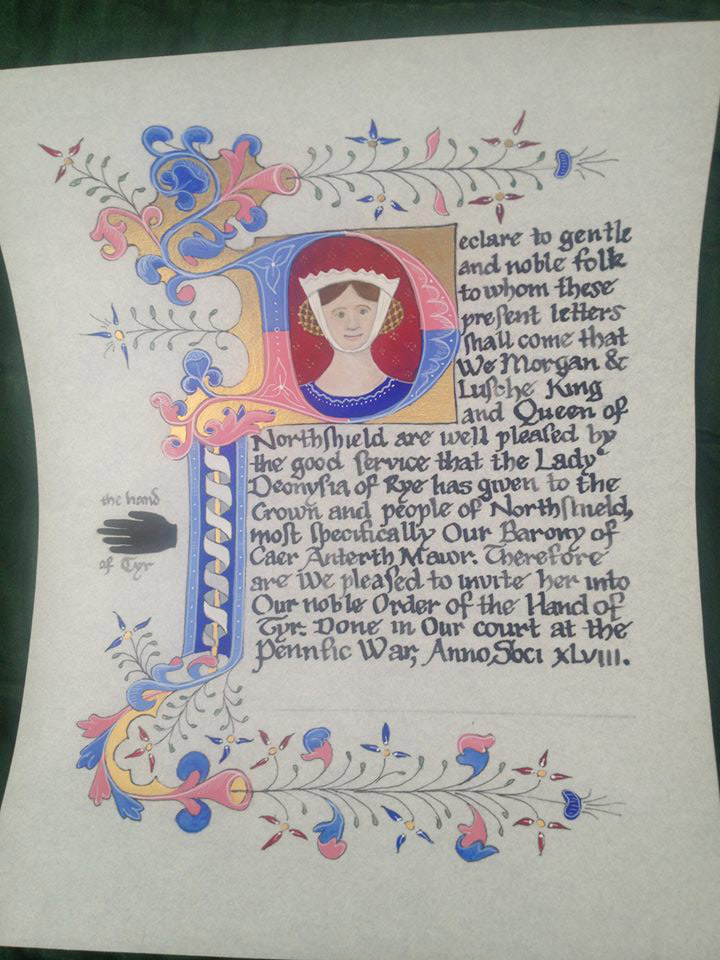 Declare to gentle
and noble folk
to whom these
preſent letters
ſhall come that
We Morgan &
Luſche King
and Queen of
Northshield are well pleaſed by
the good ſervice that the Lady
Deonyſia of Rye has given to the
Crown and people of Northſhield,
moſt ſpecifically Our Barony of
Caer Anterth Mawr. Therefore
are We pleaſed to invite her into
Our noble Order of the Hand of
Tyr. Done in Our court at the
Pennſic War, Anno Soci XLVIII.
the hand
of Tyr